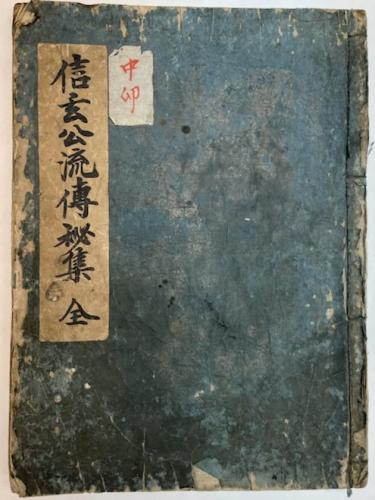 信玄公流傳秘集 全
中卯